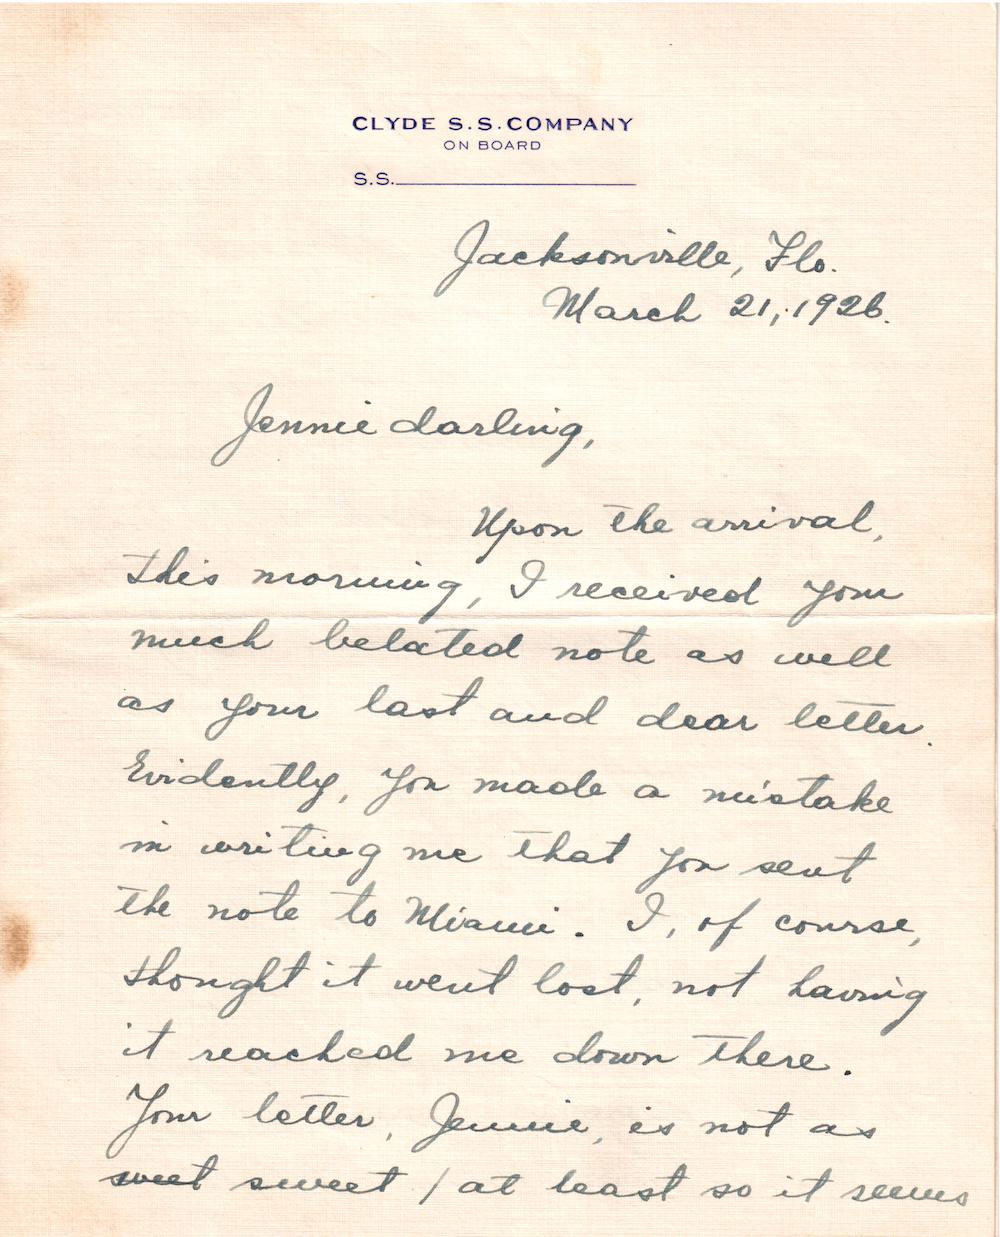 CLYDE S.S. COMPANY
ON BOARD
S.S.
Jacksonville, Flo.
March 21, 1926.
Jennie darling,
Upon the arrival,
this morning, I received your
much belated note as well
as your last and dear letter.
Evidently, you made a mistake
in writing me that you sent
the note to Miami. I, of course,
thought it went lost, not having
it reached me down there.
Your letter, Jennie, is not as
sweet sweet / at least so it seems